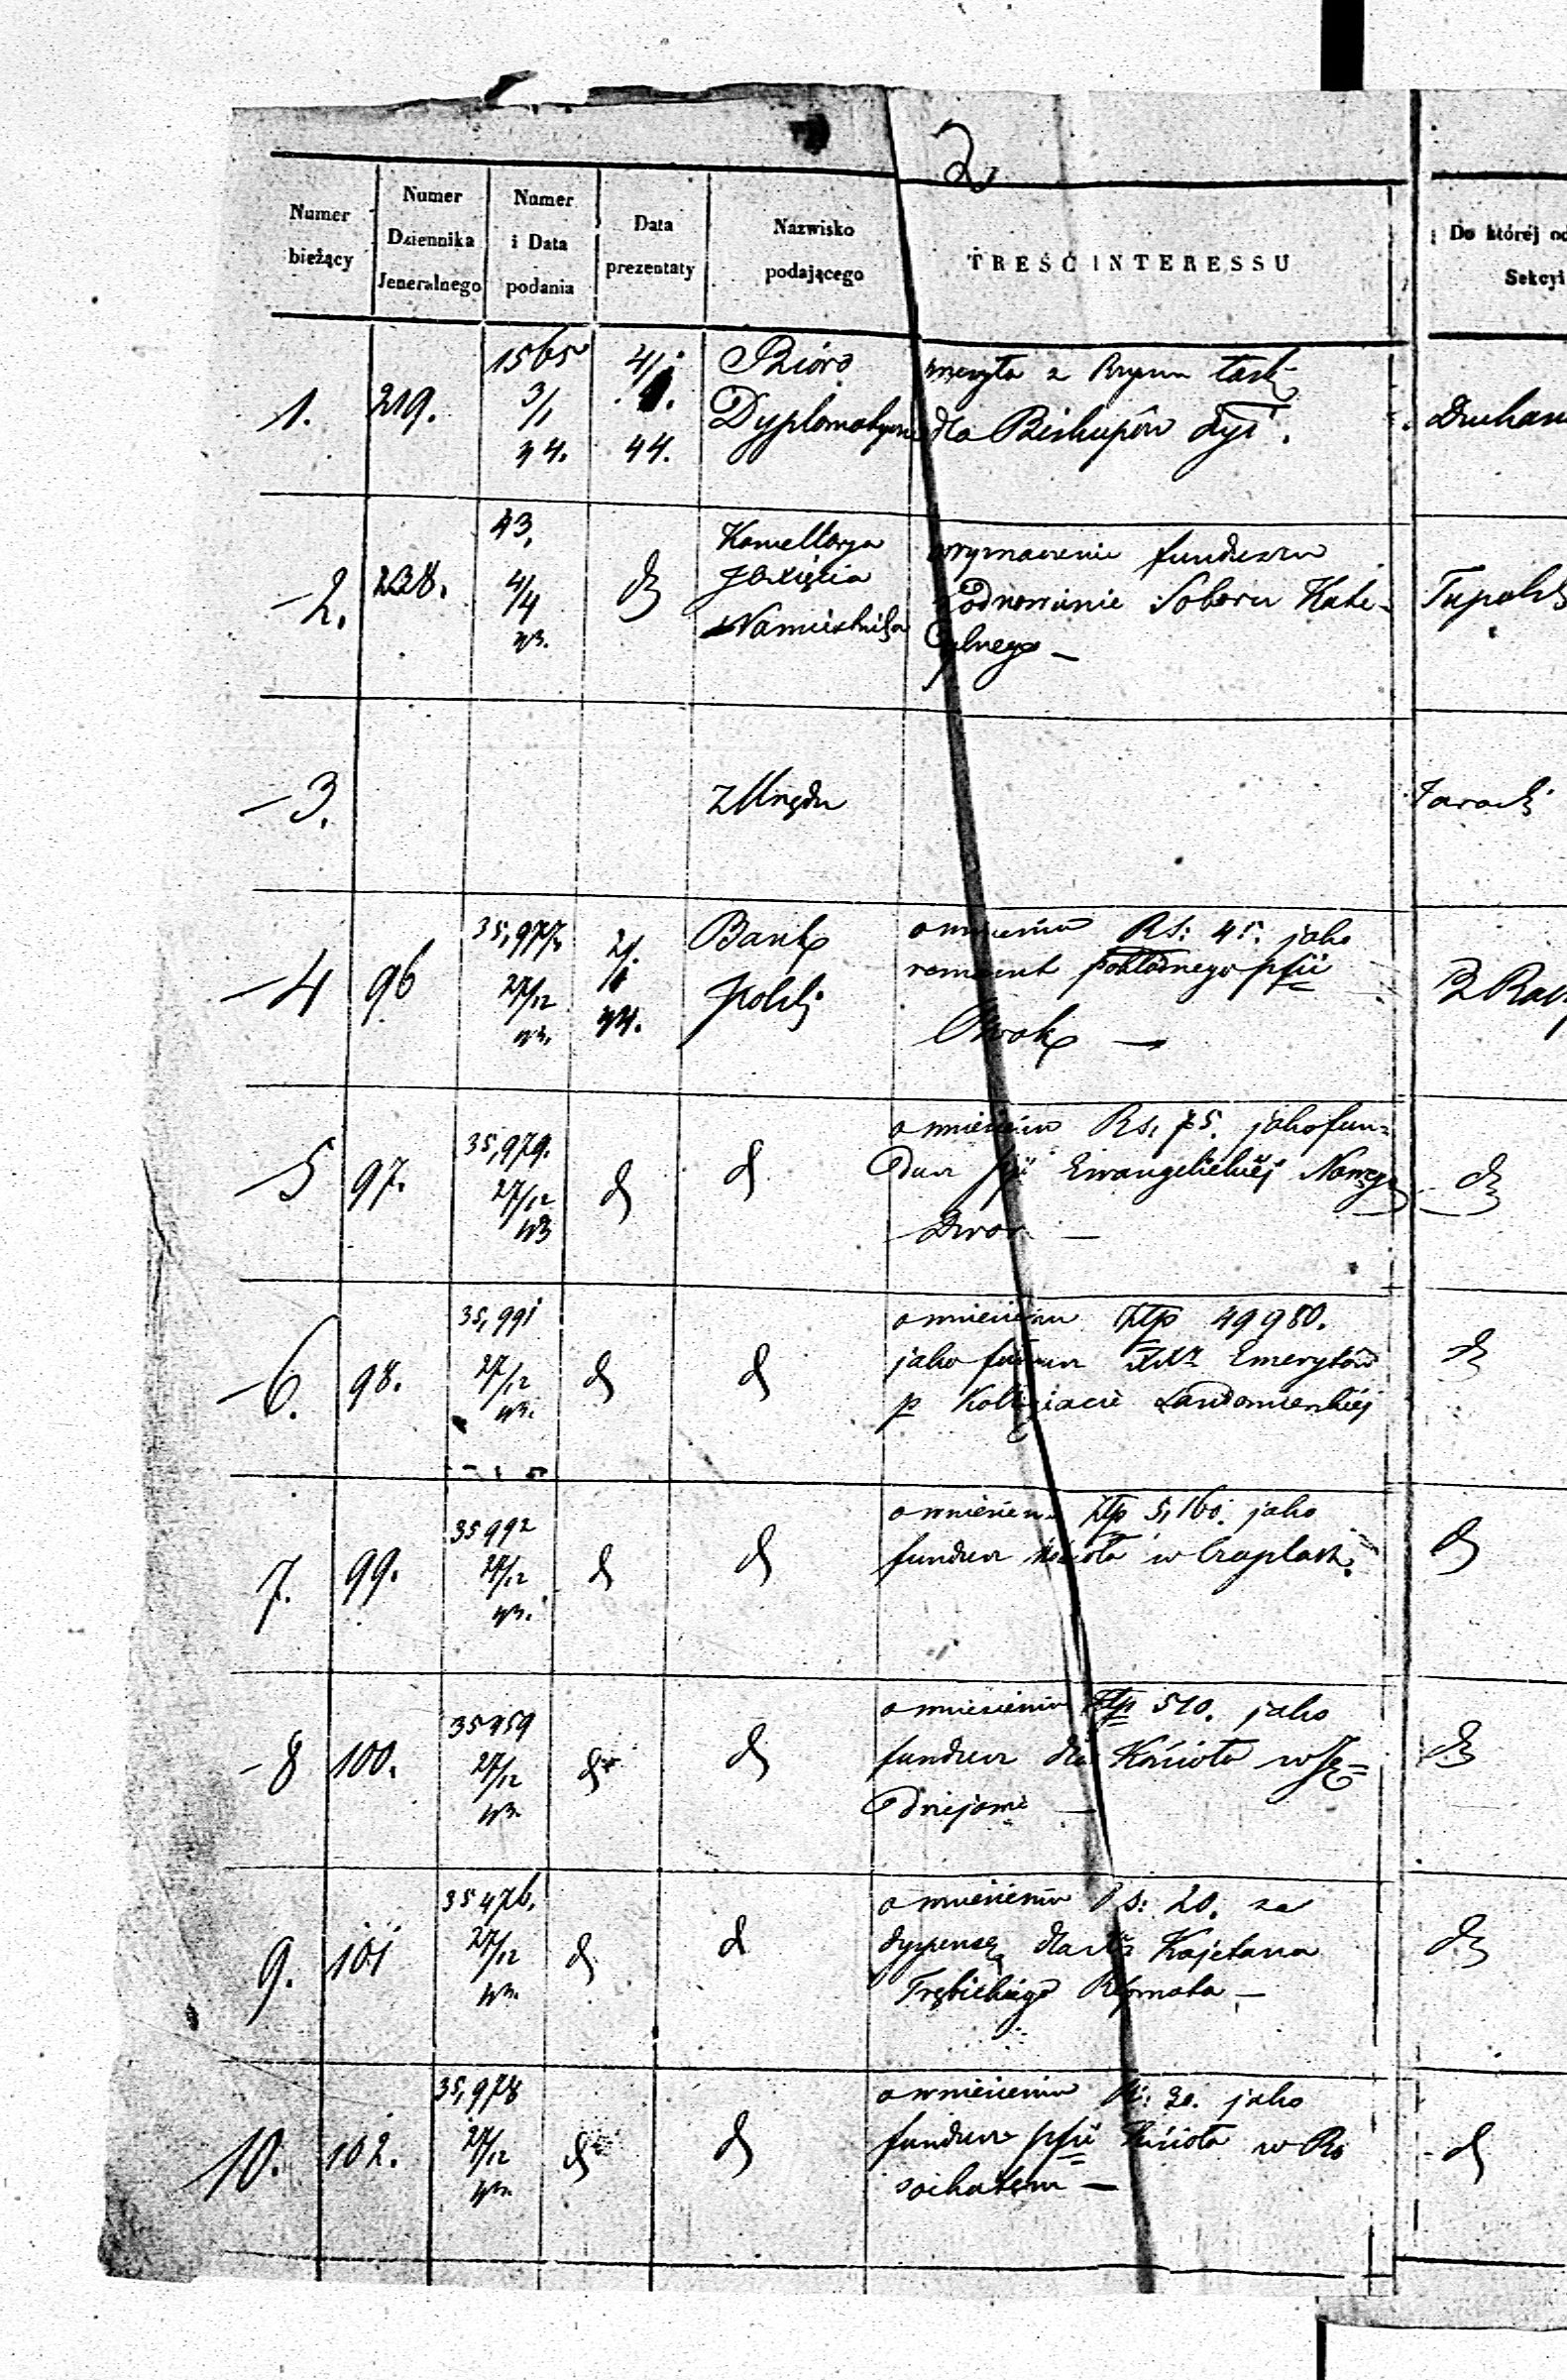 2
Numer bieżący
Numer Dziennika Jeneralnego
Numer i Data podania
Data prezentaty
Nazwisko podającego
TREŚĆ INTERESSU
Do któréj od
Sekcyi
1. 219. 1565 3/1 44. 4/1. 44. Bióro Dyplomatyczne
z Rzymu
dla Biskupów dyś.
2. 238. 43, 4/4 43. d Kancellarya JOXięcia Namiestnika
wyznaczenie funduszu
odnowienie Soboru Kate-
dralnego —
3. z Urzędu
4 96 35,977. 27/12 43. 2/1 44. Bank Polski
o wniesieniu Rs: 45. jako
remanent pokładnego pfii
—
5 97. 35,979. 27/12 43 d d
o wniesieniu Rs, 75. jako fun=
dusz pfii Ewangelickiéj Nowego
Dwor —
d
6. 98. 35,991 27/12 43. d d
o wniesieniu Złp 49980.
jako fundusz XXży Emerytów
p Kollegiacie Sandomierskiéj
d
7. 99. 35992 27/12 43. d d
o wniesieniu Złp 5,160. jako
fundusz kościoła w
d
8 100. 35959 27/12 43. d d
o wniesieniu Złp 510. jako
fundusz dla Kościoła w Ję=
drzejowie —
d
9. 101 35476. 27/12 43. d d
o wniesieniu Rs: 20. za
dyspensę dla Xa Kajetana
Trębickiego Reformata —
d
10. 102. 35,978 27/12 43. d d
o wniesieniu Rs: 30. jako
fundusz pfii Kościoła w Ro
sochatem —
d